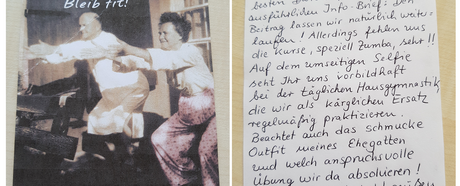 Bleib fit!
ausführlichen Info-Brief! Den
Beitrag lassen wir natürlich weiter-
laufen! Allerdings fehlen uns
die Kurse, speziell Zumba, sehr!!
Auf dem umseitigen Selfie
seht Ihr uns vorbildhaft
bei der täglichen Hausgymnastik
die wir als kärglichen Ersatz
regelmäßig praktizieren.
Beachtet auch das schmucke
Outfit meines Ehegatten
und welch anspruchsvolle
Übung wir da absolvieren!